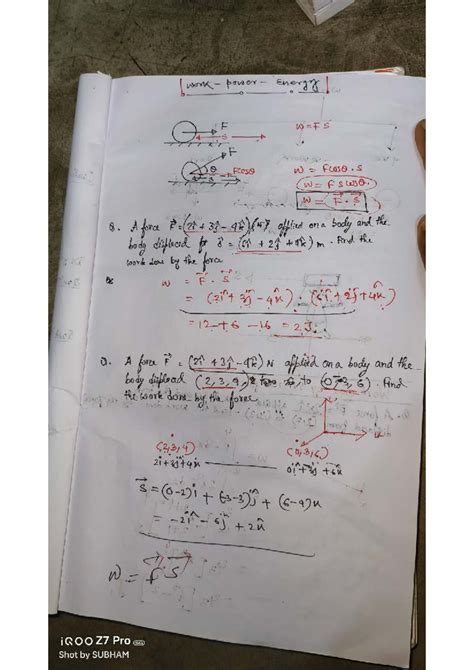 work - power - Energy
F
S
W = F S
F
θ
Fcosθ
W = Fcosθ . S
W = F S cosθ.
W = F⃗ . S⃗
Q. A force F⃗ = (2î + 3ĵ - 4k̂)(N) applied on a body and the
body displaced for s⃗ = (6î + 2ĵ + 4k̂) m. Find the
work done by the force
W = F⃗ . S⃗
= (2î + 3ĵ - 4k̂) . (6î + 2ĵ + 4k̂)
= 12 + 6 - 16 = 2 J.
Q. A force F⃗ = (2î + 2ĵ - 4k̂) N applied on a body and the
body displaced (2, 3, 4, to (0, -3, 6). Find
the work done by the force
(2,3,4)
(0,-3,6)
2i + 3j + 4k
0i + -3j + 6k
S⃗ = (0-2)i + (-3-3)j + (6-4)k
= -2î - 6ĵ + 2k̂
W = F⃗.S⃗
iQOO Z7 Pro 5G
Shot by SUBHAM